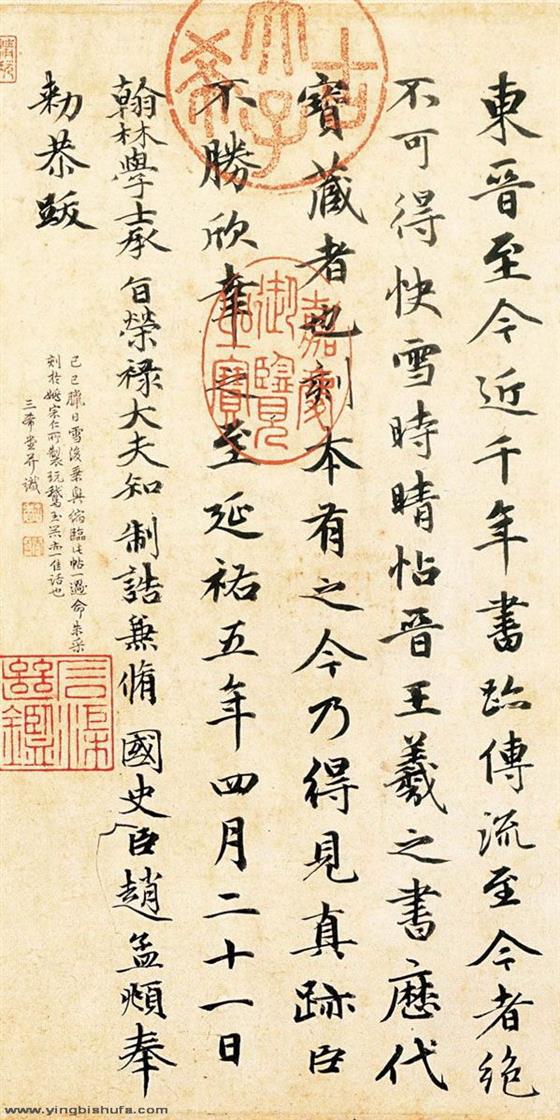 東晉至今近千年書跡傳流至今者絕
不可得快雪時晴帖晉王羲之書歷代
寶藏者也刻本有之今乃得見真跡臣
不勝欣幸之至延祐五年四月二十一日
翰林學士承旨榮祿大夫知制誥兼脩國史臣趙孟頫奉
勑恭跋
己巳臘日雪後乘興偶臨此帖一過命朱采
刻於姚宗仁所製玩鵞玉器亦一佳話也
三希堂并識
古希天子
嘉慶御覽之寶
www.yingbishufa.com